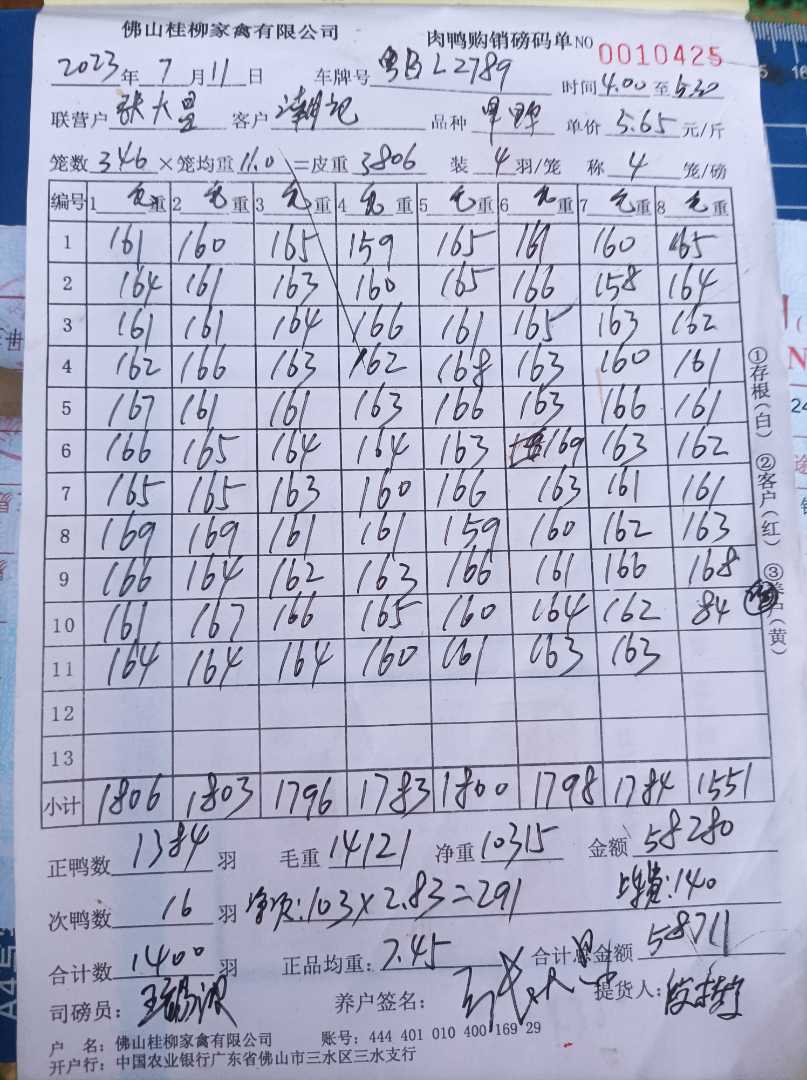 佛山桂柳家禽有限公司 肉鸭购销磅码单 NO 0010425
2023年 7月 11日 车牌号 粤B L2789 时间 4.00 至 5.30
联营户 张大显 客户 潮记 品种 单价 5.65 元/斤
笼数 346 × 笼均重 11.0 =皮重 3806 装 4 羽/笼 称 4 笼/磅
编号 1 毛重 2 毛重 3 毛重 4 毛重 5 毛重 6 毛重 7 毛重 8 毛重
1 161 160 165 159 165 161 160 165
2 164 161 163 160 165 166 158 164
3 161 161 164 166 161 165 163 162
4 162 166 163 162 168 163 160 161
5 167 161 161 163 166 163 166 161
6 166 165 164 164 163 169 163 162
7 165 165 163 160 166 163 161 161
8 169 169 161 161 159 160 162 163
9 166 164 162 163 166 161 166 168
10 161 167 166 165 160 164 162 84
11 164 164 164 160 161 163 163
12
13
小计 1806 1803 1796 1783 1800 1798 1784 1551
①存根(白) ②客户(红) ③养户(黄)
正鸭数 1384 羽 毛重 14121 净重 10315 金额 58280
次鸭数 16 羽 :103×2.83=291 费:140
合计数 1400 羽 正品均重: 7.45 合计总金额 58711
司磅员: 养户签名: 提货人:
户 名: 佛山桂柳家禽有限公司 账号: 444 401 010 400 169 29
开户行: 中国农业银行广东省佛山市三水区三水支行